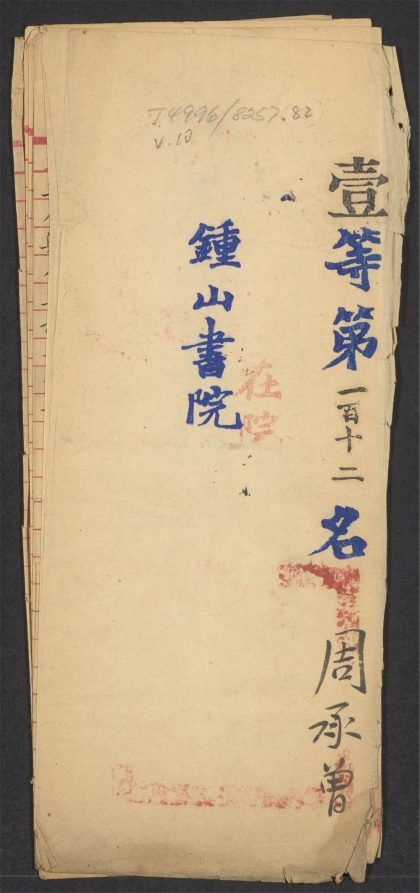 T4996/8257.82
v.10
壹等第一百十二名 周承曾
鍾山書院
在院